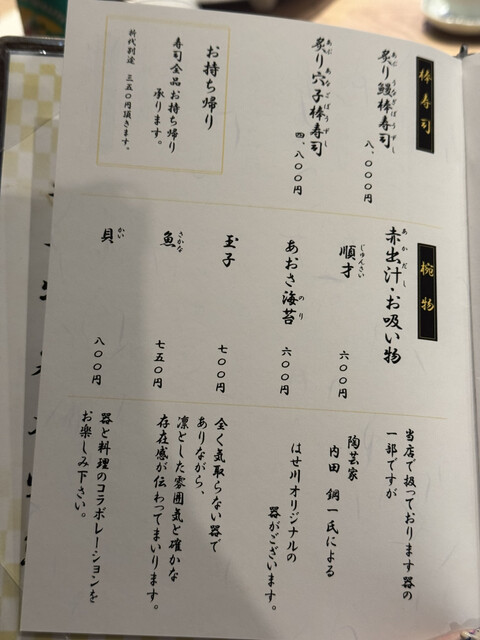 棒寿司
炙り鰻棒寿司
八、〇〇〇円
炙り穴子棒寿司
四、八〇〇円
お持ち帰り
寿司全品お持ち帰り
承ります。
料代別途 三五〇円頂きます。
椀物
赤出汁・お吸い物
順才
六〇〇円
あおさ海苔
六〇〇円
玉子
七〇〇円
魚
七五〇円
貝
八〇〇円
当店で扱っております器の
一部ですが
陶芸家
内田 鋼一氏による
はせ川オリジナルの
器がございます。
全く気取らない器で
ありながら、
凛とした雰囲気と確かな
存在感が伝わってまいります。
器と料理のコラボレーションを
お楽しみ下さい。